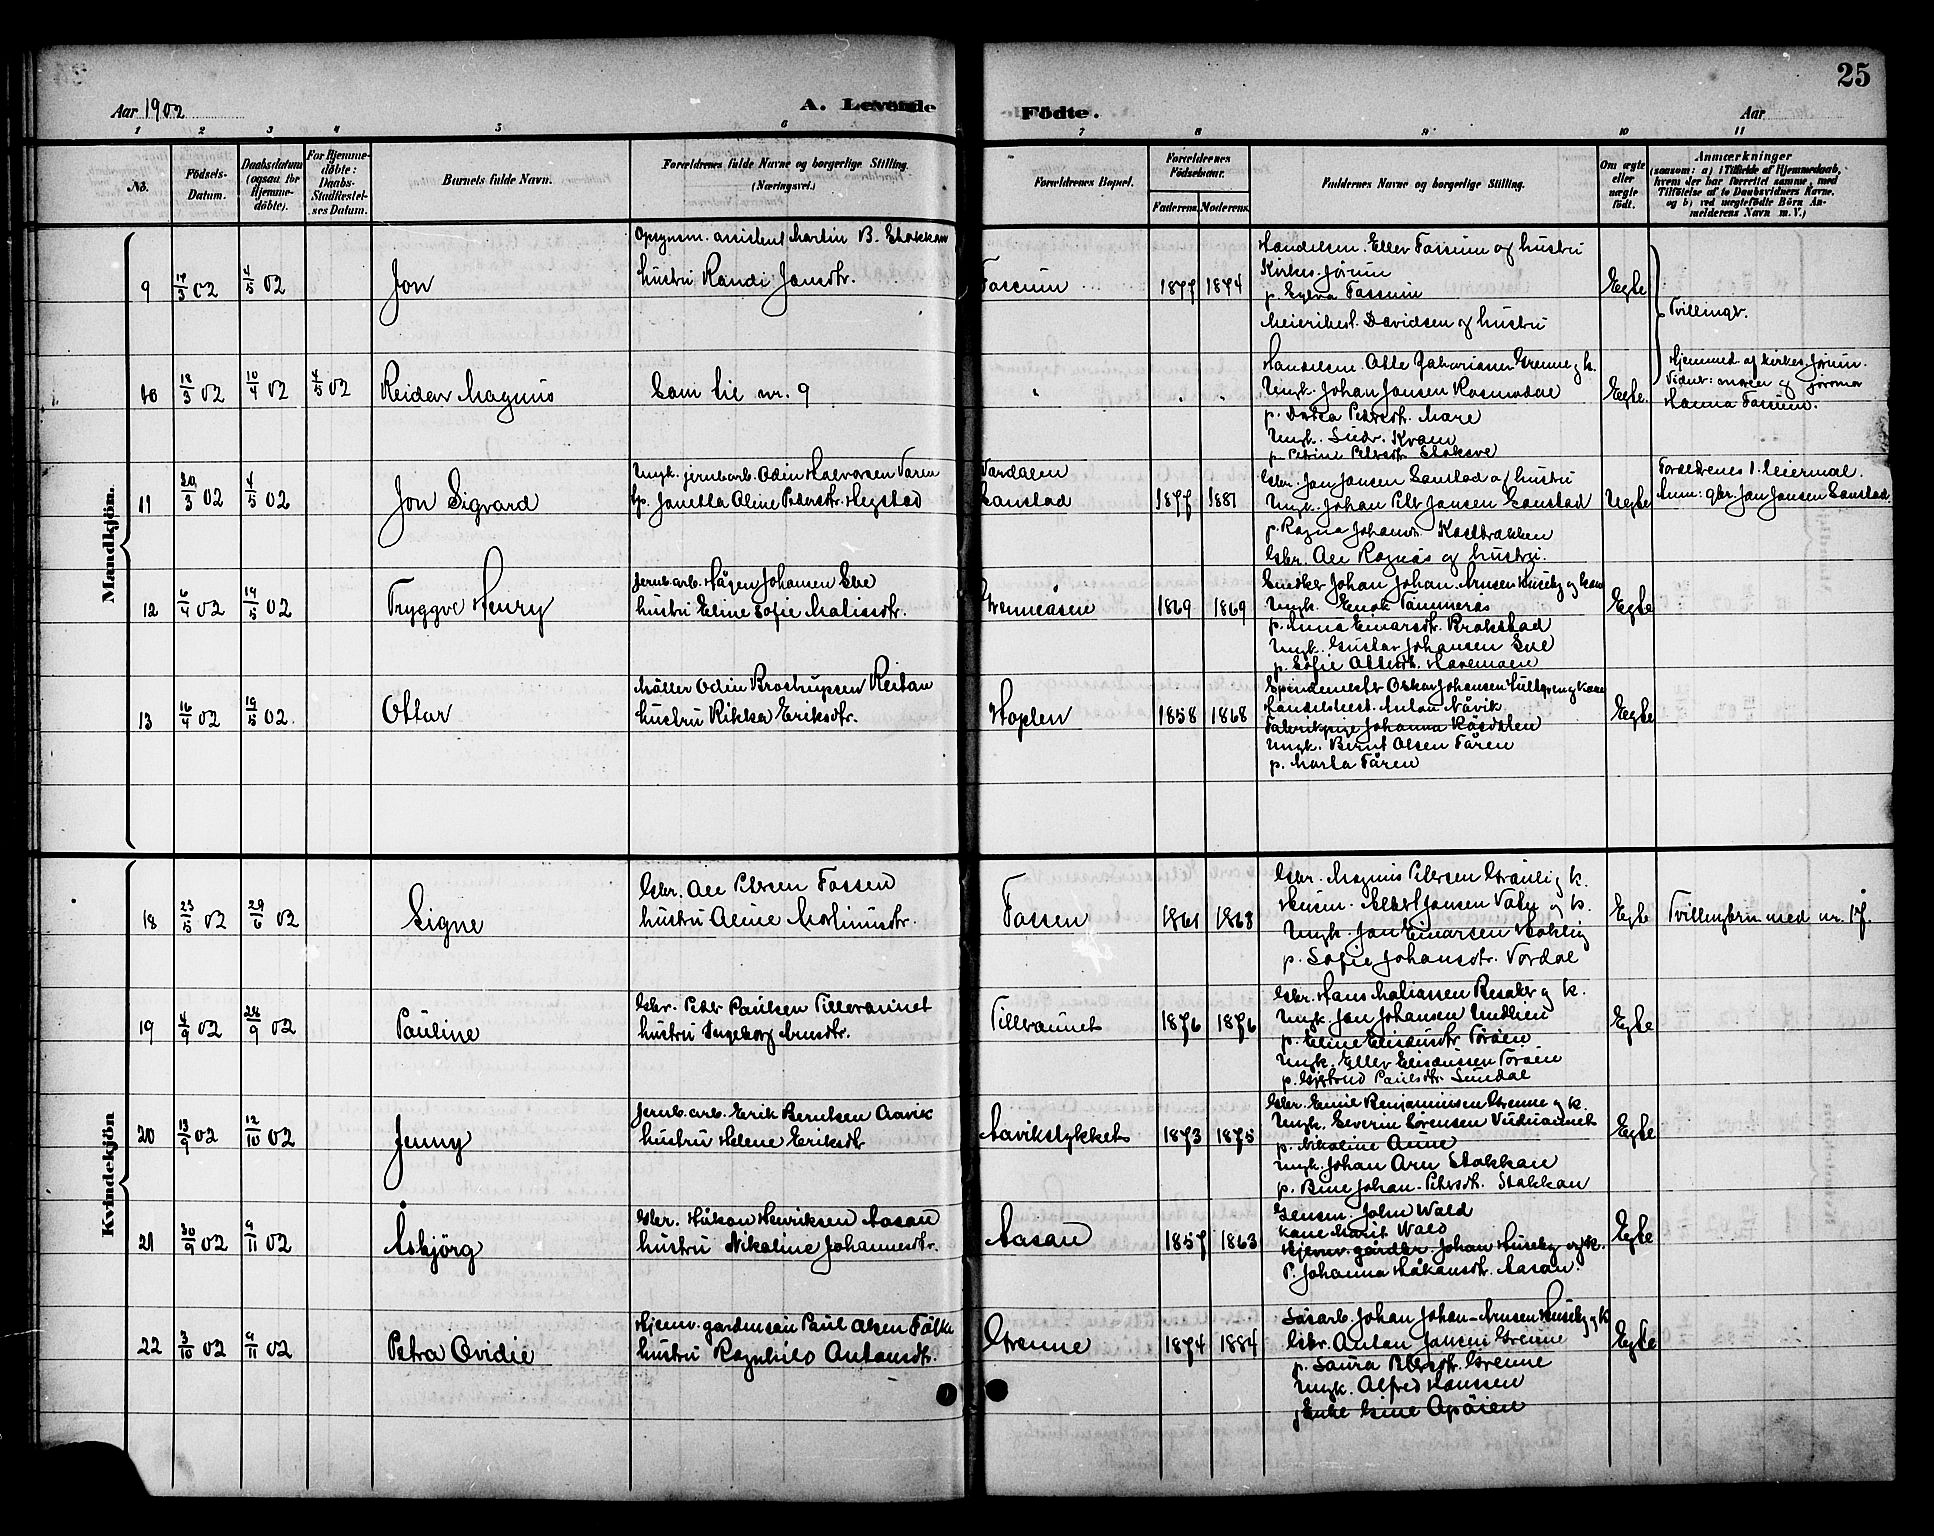 25
Aar 1902
A. Levende Födte.
Aar
1 2 3 4 5 6 7 8 9 10 11
No.
Födsels-Datum.
Daabsdatum (ogsaa for Hjemme-döbte).
For Hjemme-döbte: Daabs-Stadfestelses Datum.
Barnets fulde Navn.
Forældrenes fulde Navne og borgerlige Stilling. (Næringsvei.)
Forældrenes Bopæl.
Forældrenes Födselsaar.
Faderens. Moderens.
Faddernes Navne og borgerlige Stilling.
Om ægte eller uægte födt.
Anmærkninger
(saasom: a) i Tilfælde af Hjemmedaab, hvem der har forrettet samme, med Tilföielse af to Daabsvidners Navne, og b) ved uægtefödte Börn Anmelderens Navn m. V.)
Mandkjön.
9 02 4/5 02 Jon
Opsynsm. assistent Martin B. Stokkan
hustru Randi Jonsdtr.
Fossum 1877 1874
Handelsm. Eller Fossum og hustru
Kirkes. Jörum
p. Sylva Fossum
Meieribest. Davidsen og hustru
Egte
Tvillinger.
10 18/3 02 10/4 02 4/5 02 Reidar Magnus
Som til nr. 9
Handelsm. Otte Zakariasen Grenne og k.
Ungk. Johan Jansen Rosmodal
p. Petersdtr. Mære
Ungk. Kvam
p. Petrine Petersdtr.
Egte.
Hjemmed. af kirkes. Jörum.
Vidner: moren og jormor
Hanna Fossum.
11 29/3 02 4/5 02 Jon Sigvard
Ungk. jernb.arb. Odin Halvorsen Faren
p. Janetta Aline Pedersdtr. Hegstad
Vordalen
Sanstad 1877 1881
Gbr. Jon Jansen Sanstad og hustru
Ungk. Johan Peter Jansen Sanstad
p. Ragna Johansdtr. Kostbakken
Gbr. Ole Rognås og hustru.
Uegte
Forældrenes 1. leiermål.
Anm: gbr. Jon Jansen Sanstad.
12 6/4 02 19/5 02 Tryggve Henry
Jernb.arb. Hågen Johansen Sve
hustru Eline Sofie Matisdtr.
Grenneåsen 1869 1869
Snedker Johan Johan-Arnsen Huseby og kone
Ungk. Enok Tömmerås
p. Anna Einarsdtr. Brokstad
Ungk. Gustav Johansen Sve
p. Sofie Ottesdtr. Havemoen
Egte
13 16/4 02 19/5 02. Ottar
Möller Odin Brostrupsen Reitan
hustru Rikka Eriksdtr.
Hoplen 1858 1868
Spindemester Oskar Johansen Hultgren og kone
Handelsbest. Anton Nåvik
Fabrikpige Johanna Råsdalen
Ungk. Bernt Olsen Fåren
p. Marta Fåren
Egte
Kvindekjön
18 23/5 02 29/6 02 Signe
Gbr. Ole Petersen Fossen
hustru Oline Martinusdtr.
Fossen 1861 1863
Gbr. Magnus Petersen Grönli og k.
Husm. Albert Jansen Vatn og k.
Ungk. Jon Einarsen Moklig
p. Sofie Johansdtr. Vordal
Egte
Tvillingbrn med nr. 17.
19 4/9 02 28/9 02 Pauline
Gbr. Peter Paulsen Tillervannet
hustru Ingeborg Arnsdtr.
Tillervannet 1876 1876
Gbr. Hans Matiassen Resaker og k.
Ungk. Jon Johansen Undlien
p. Eline Eliseusdtr. Toröen
Ungk. Eller Eliseussen Toröen
p. Gjertrud Paulsdtr. Sundal
Egte
20 13/9 02 12/10 02 Jenny
Jernb.arb. Erik Berntsen Aavik
hustru Helene Eriksdtr.
Aavikstykket 1873 1875
Gbr. Emil Benjaminsen Grenne og k.
Ungk. Severin Sörensen Vuduvannet
p. Nikoline Aune
Ungk. Johan Arn Stokkan
p. Bine Johan-Petersdtr. Stokkan
Egte
21 30/9 02 9/11 02 Åsbjörg
Gbr. Håkon Henriksen Aasan
hustru Nikoline Johannesdtr.
Aasan 1857 1863
Lensm. John Wald
kone Marit Wald
Hjemv. gårdbr. Johan Huseby og k.
P. Johanna Håkonsdtr. Aasan.
Egte
22 3/10 02 9/11 02 Petra Ovidie
Hjemv. gårdmann Paul Olsen Falk
hustru Ragnhild Antonsdtr.
Grenne 1874 1884
Lösarb. Johan Johan-Arnsen Huseby og k
Gbr. Anton Jansen Grenne
p. Laura Petersdtr. Grenne
Ungk. Alfred Hanssen
Enke Gine Opöien
Egte